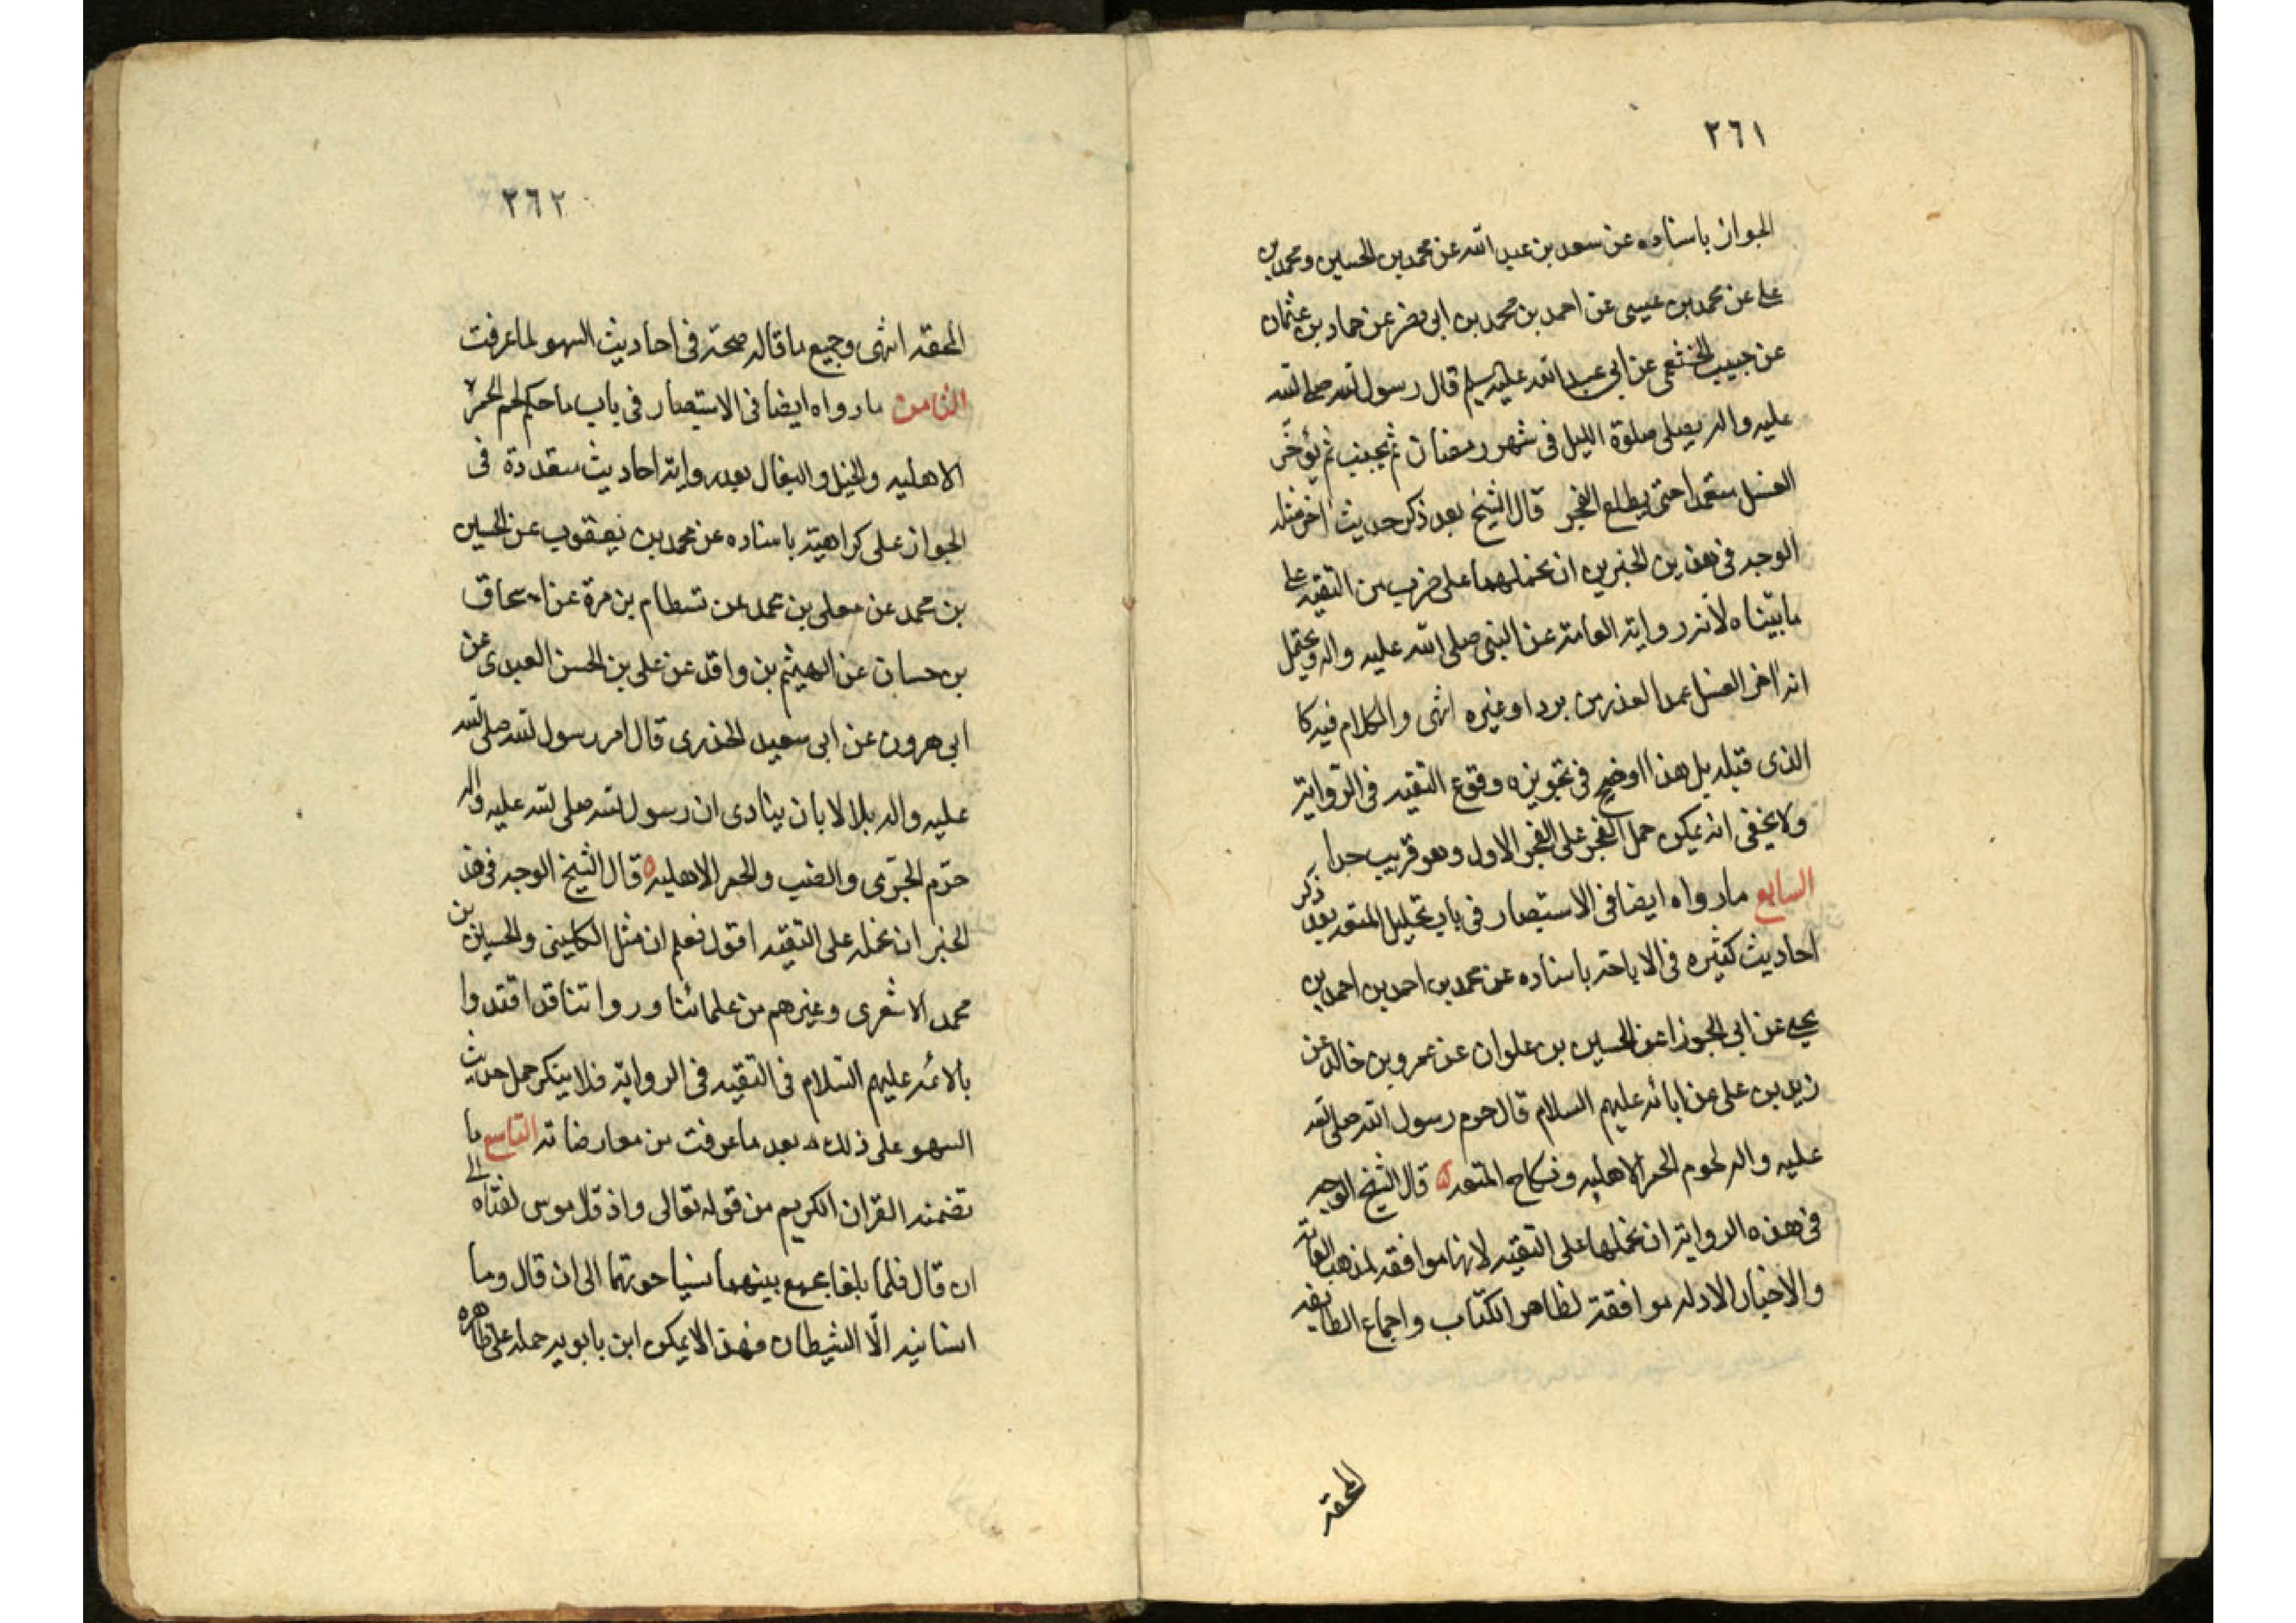 ٢٦١
الجواز باسناده عن سعد بن عبد الله عن محمد بن الحسين ومحمد بن
علي عن محمد بن عيسى عن احمد بن محمد بن ابى نصر عن حماد بن عثمان
عن حبيب الخثعمي عن ابي عبد الله عليه السلم قال رسول الله صلى الله
عليه واله يصلى صلوة الليل فى شهر رمضان ثم يجنب ثم يؤخر
الغسل متعمدا حتى يطلع الفجر قال الشيخ بعد ذكر حديث اخر مثله
الوجه فى هذين الخبرين ان نحملهما على ضرب من التقيه على
ما بيناه لانه رواية العامة عن النبى صلى الله عليه واله ويحتمل
انه اخر الغسل عمدا لعذر من برد او غيره انتهى والكلام فيه كا
الذى قبله بل هذا اوضح فى تجويزه وقوع التقيه فى الرواية
ولا يخفى انه يمكن حمل الفجر على الفجر الاول وهو قريب جدا
السابع ما رواه ايضا فى الاستبصار فى باب تحليل المتعه بعد ذكر
احاديث كثيره فى الاباحة باسناده عن محمد بن احمد بن احمد بن
يحيى عن ابي الجوزا عن الحسين بن علوان عن عمرو بن خالد عن
زيد بن على عن ابائه عليهم السلام قال حرم رسول الله صلى الله
عليه واله لحوم الحمر الاهليه ونكاح المتعه قال الشيخ الوجه
فى هذه الرواية ان نحملها على التقيه لانها موافقه لمذهب العامة
والاخبار الاوله موافقة لظاهر الكتاب واجماع الطايفه
المحقه
٢٦٢
المحقه انتهى وجميع ما قاله صحته فى احاديث السهو لما عرفت
الثامن ما رواه ايضا فى الاستبصار فى باب ما حكم لحم الحمر
الاهليه والخيل والبغال بعد رواية احاديث متعددة فى
الجواز على كراهية باسناده عن محمد بن يعقوب عن الحسين
بن محمد عن معلى بن محمد عن بسطام بن مرة عن اسحاق
بن حسان عن الهيثم بن واقد عن على بن الحسن العبدى عن
ابى هرون عن ابى سعيد الخدرى قال امر رسول الله صلى الله
عليه واله بلالا بان ينادى ان رسول الله صلى الله عليه واله
حرم الجرى والضب والحمر الاهليه قال الشيخ الوجه فى هذا
الخبر ان نحمله على التقيه اقول فعلم ان مثل الكلينى والحسين بن
محمد الاشعرى وغيرهم من علمائنا ورواتنا قد اقتدوا
بالائمه عليهم السلام فى التقيه فى الرواية فلا ينكر حمل حديث
السهو على ذلك بعد ما عرفت من معارضاته التاسع ما
تضمنه القران الكريم من قوله تعالى واذ قال موسى لفتاه الى
ان قال فلما بلغا مجمع بينهما نسيا حوتهما الى ان قال وما
انسانيه الّا الشيطان فهذا لا يمكن ابن بابويه حمله على ظاهره